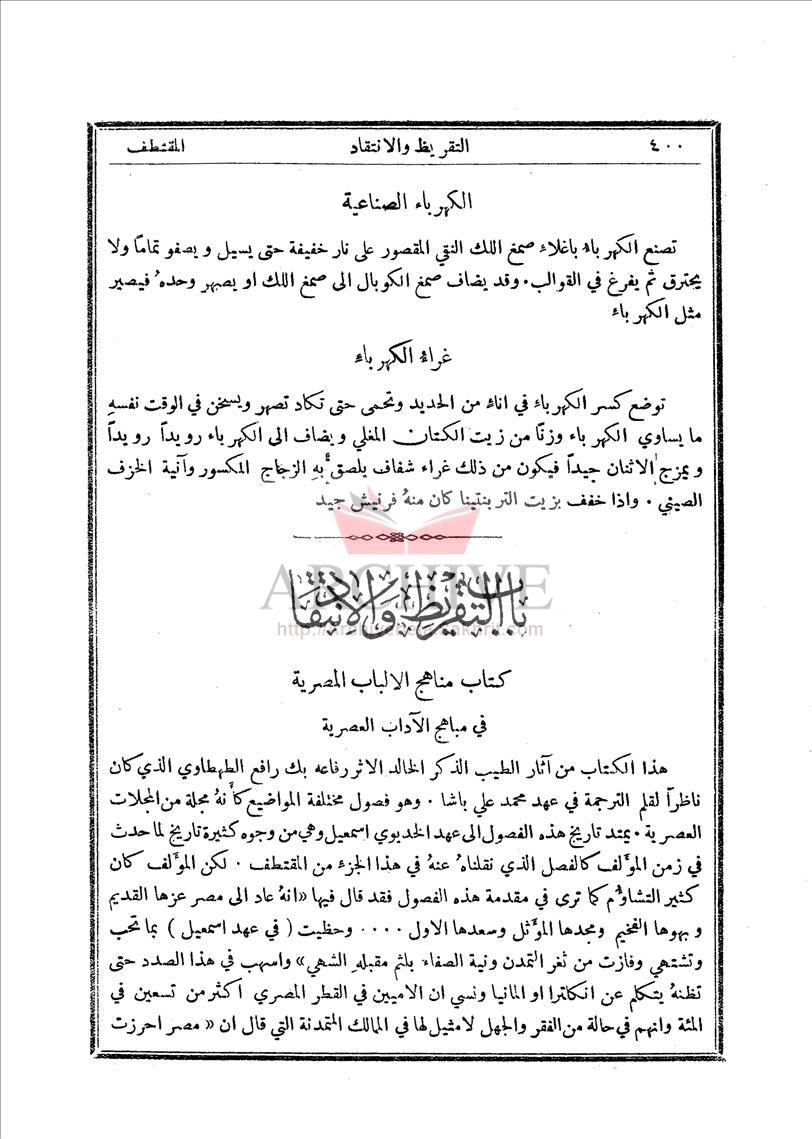 ٤٠٠ التقريظ والانتقاد المقتطف
الكهرباء الصناعية
تصنع الكهرباء باغلاء صمغ اللك النقي المقصور على نار خفيفة حتى يسيل ويصفو تماماً ولا
يحترق ثم يفرغ في القوالب. وقد يضاف صمغ الكوبال الى صمغ اللك او يصهر وحدهُ فيصير
مثل الكهرباء
غراء الكهرباء
توضع كسر الكهرباء في اناء من الحديد وتحمى حتى تكاد تصهر ويسخن في الوقت نفسهِ
ما يساوي الكهرباء وزنًا من زيت الكتان المغلي ويضاف الى الكهرباء رويداً رويداً
ويمزج الاثنان جيداً فيكون من ذلك غراء شفاف يلصق بهِ الزجاج المكسور وآنية الخزف
الصيني. واذا خفف بزيت التربنتينا كان منهُ فرنيش جيد
ARCHIVE
باب التقريظ والانتقاد
كتاب مناهج الالباب المصرية
في مباهج الآداب العصرية
هذا الكتاب من آثار الطيب الذكر الخالد الاثر رفاعه بك رافع الطهطاوي الذي كان
ناظراً لقلم الترجمة في عهد محمد علي باشا. وهو فصول مختلفة المواضيع كأنهُ مجلة من المجلات
العصرية. يمتد تاريخ هذه الفصول الى عهد الخديوي اسمعيل وهي من وجوه كثيرة تاريخ لما حدث
في زمن المؤلف كالفصل الذي نقلناهُ عنهُ في هذا الجزء من المقتطف. لكن المؤلف كان
كثير التشاؤم كما ترى في مقدمة هذه الفصول فقد قال فيها «انهُ عاد الى مصر عزها القديم
وبهوها الفخيم ومجدها المؤثل وسعدها الاول .... وحظيت (في عهد اسمعيل) بما تحب
وتشتهي وفازت من ثغر التمدن ونية الصفاء بلثم مقبلهِ الشهي» واسهب في هذا الصدد حتى
تظنهُ يتكلم عن انكلترا او المانيا ونسي ان الاميين في القطر المصري اكثر من تسعين في
المئة وانهم في حالة من الفقر والجهل لا مثيل لها في الممالك المتمدنة التي قال ان «مصر احرزت